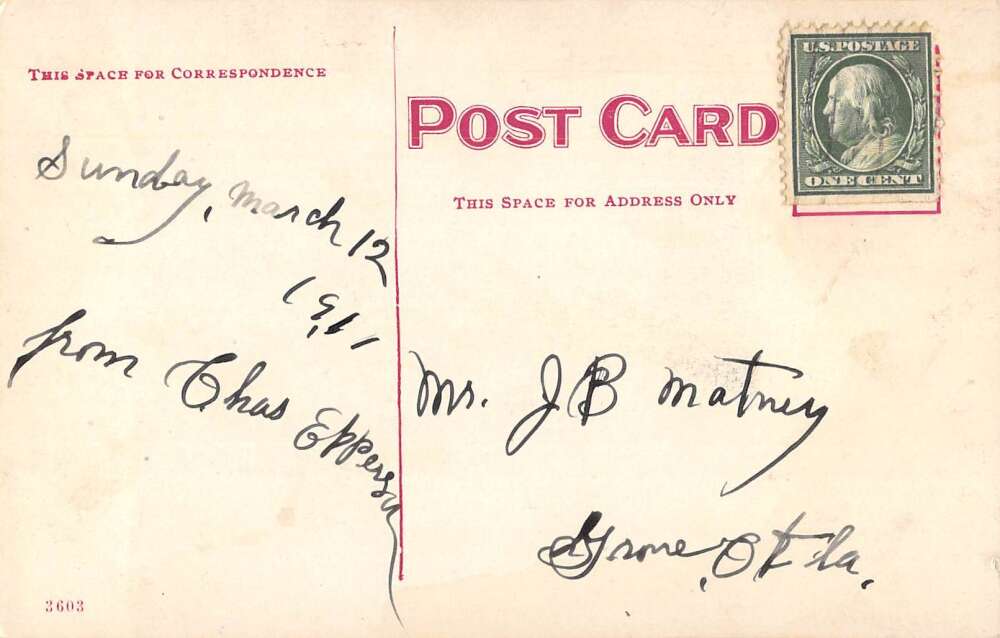 THIS SPACE FOR CORRESPONDENCE
POST CARD
THIS SPACE FOR ADDRESS ONLY
U.S. POSTAGE
ONE CENT
Sunday, March 12
1911
from Chas Epperson
Mr. J B Matney
Grove, Okla.
3603